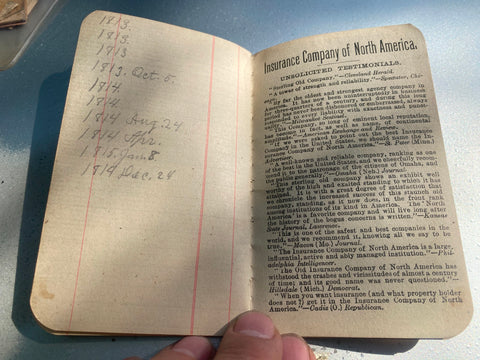 1813.
1813.
1813
1813. Oct. 5.
1814.
1814.
1814 Aug. 24
1814 Apr.
1815. Jan 8
1814 Dec. 24
Insurance Company of North America.
UNSOLICITED TESTIMONIALS.
"Sterling Old Company."—Cleveland Herald.
"A tower of strength and reliability."—Spectator, Chi-
by far the oldest and strongest agency company in
America. It has now been uninterruptedly in business
for three-quarters of a century, and during this long
period has never been dishonored or embarrassed, always
responding to every liability with exactness and
Sentinel.
"The Company, so long of eminent local reputation,
has become in fact, as well as name, of continental
American Exchange and Review.
"If we were asked to point out the best Insurance
Company in the United States, we should name the In-
surance Company of North America."—St. Peter (Minn.)
Advertiser.
"A well-known and reliable company, ranking as one
of the best in the United States, and we cheerfully recom-
mend it to the patronage of the citizens of Omaha, and
the West generally."—Omaha (Neb.) Journal.
"This sterling old company shows an exhibit well
worthy of the high and exalted standing to which it has
attained. It is with a great degree of satisfaction that
we chronicle the increased success of this staunch old
company, standing, as it now does, in the front rank
among institutions of its kind in America. The "North
America" is a favorite company and will live long after
the history of the bogus concerns is written."—Kansas
State Journal, Lawrence.
"This is one of the safest and best companies in the
world, and we recommend it, knowing all we say to be
true."—Macon (Mo.) Journal.
"The Insurance Company of North America is a large,
influential, active and ably managed institution."—Phil-
adelphia Intelligencer.
"the Old Insurance Company of North America has
withstood the crashes and vicissitudes of almost a century
of time; and its good name was never questioned."—
Hillsdale (Mich.) Democrat.
"When you want insurance (and what property holder
does not?) get it in the Insurance Company of North
America."—Cadiz (O.) Republican.